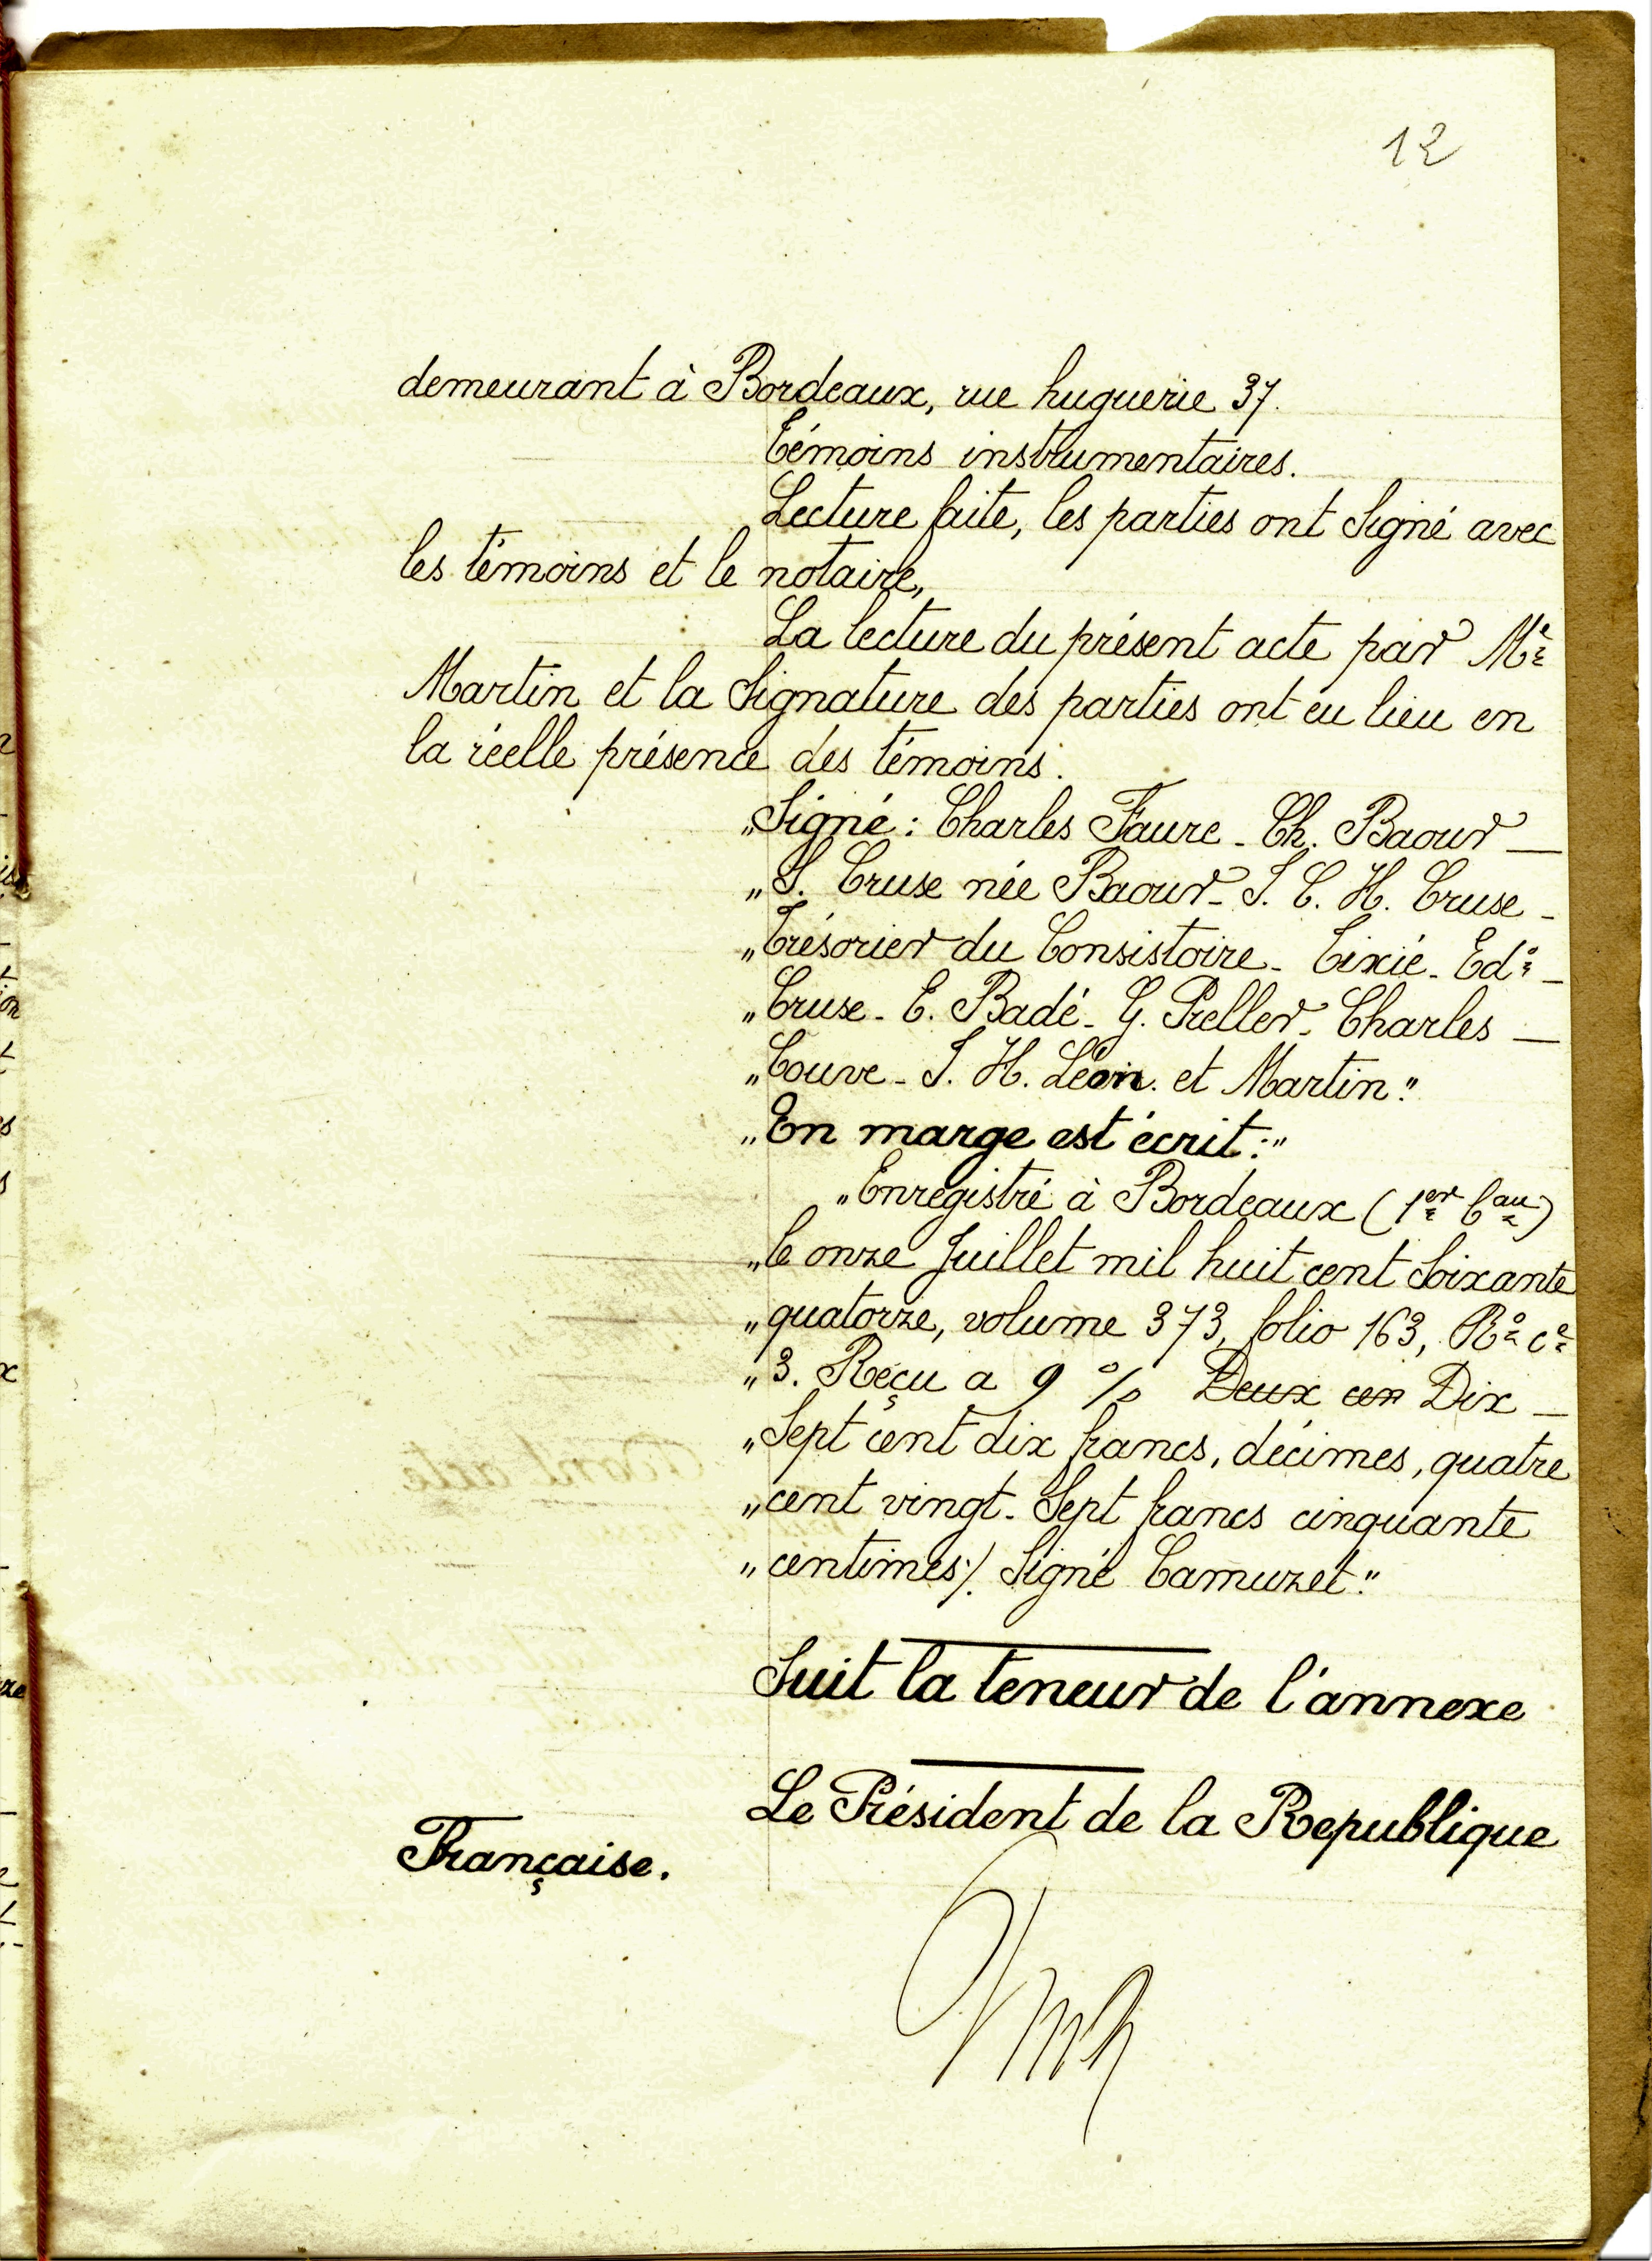 12
demeurant à Bordeaux, rue huguerie 37.
Témoins instrumentaires.
Lecture faite, les parties ont Signé avec
les témoins et le notaire,
La lecture du présent acte par Me
Martin et la Signature des parties ont eu lieu en
la réelle présence des témoins.
„Signé : Charles Faure - Ch. Baour —
„S. Cruse née Baour - S. C. H. Cruse -
„Trésorier du Consistoire - Tixié - Edd -
„Cruse - E. Badé - G. Preller - Charles —
„Couve - S. H. Léon. et Martin."
„En marge est écrit :"
„Enregistré à Bordeaux (1er bau)
„le onze Juillet mil huit cent Soixante
„quatorze, volume 373, folio 163, Ro ce
„3. Reçu a 9 % Deux cen Dix —
„Sept cent dix francs, décimes, quatre
„cent vingt-Sept francs cinquante
„centimes ./. Signé Camuzet."
Suit la teneur de l'annexe
Le Président de la Republique
Française.